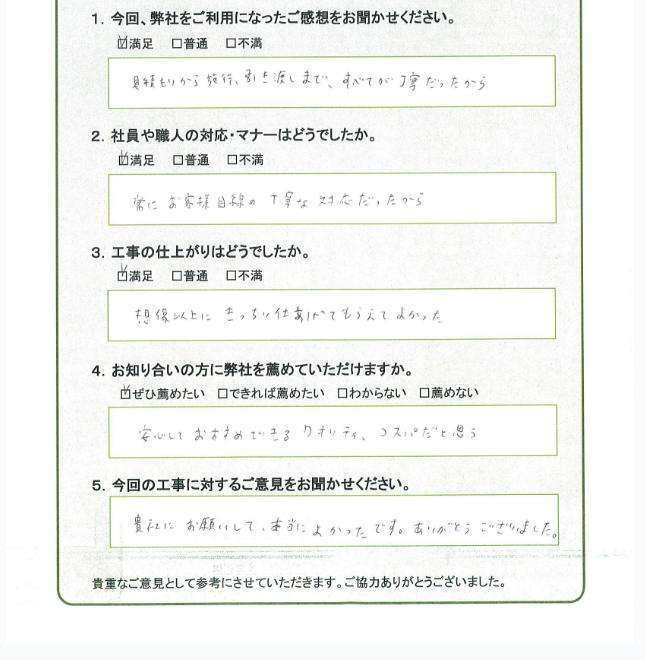 1. 今回、弊社をご利用になったご感想をお聞かせください。
☑満足 □普通 □不満
見積もりから施行、引き渡しまで、すべてが丁寧だったから
2. 社員や職人の対応・マナーはどうでしたか。
☑満足 □普通 □不満
常にお客様目線の丁寧な対応だったから
3. 工事の仕上がりはどうでしたか。
☑満足 □普通 □不満
想像以上にきっちり仕あげてもらえてよかった
4. お知り合いの方に弊社を薦めていただけますか。
☑ぜひ薦めたい □できれば薦めたい □わからない □薦めない
安心しておすすめできるクオリティ、コスパだと思う
5. 今回の工事に対するご意見をお聞かせください。
貴社にお願いして、本当によかったです。ありがとうございました。
貴重なご意見として参考にさせていただきます。ご協力ありがとうございました。